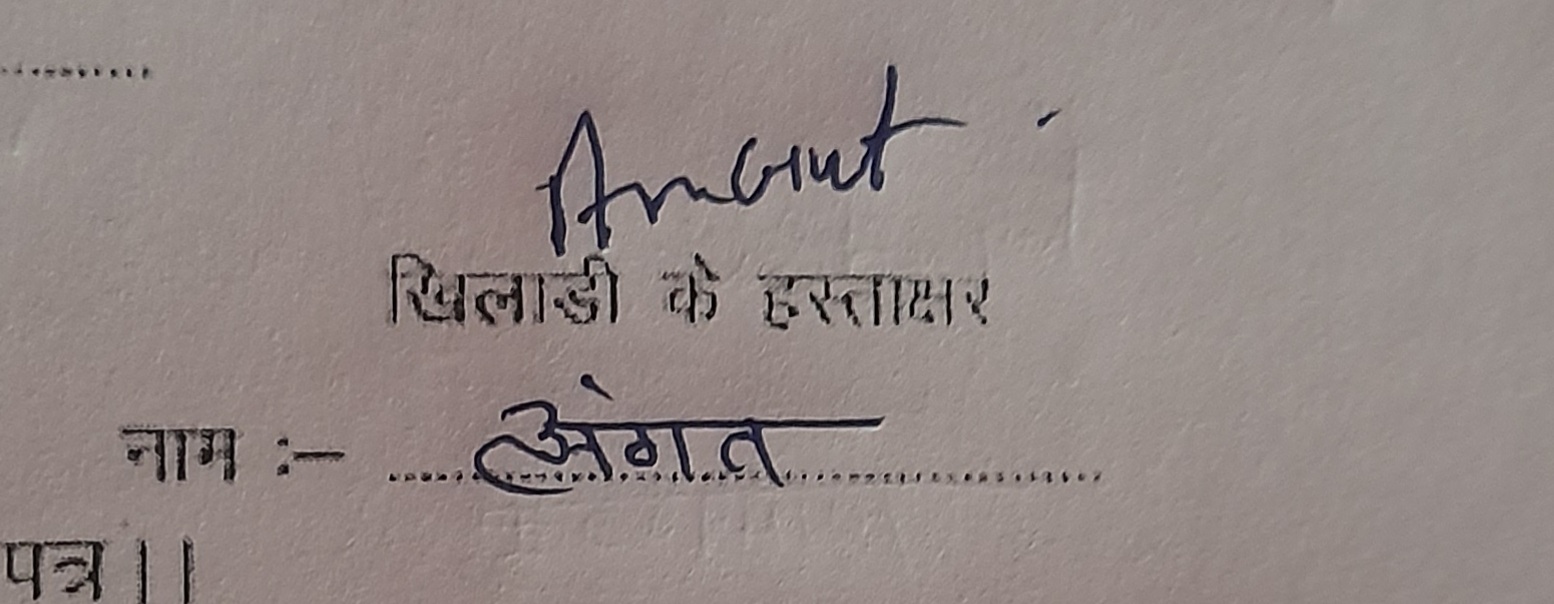 खिलाडी के हस्ताक्षर
नाम :- अंगत
पत्र ||